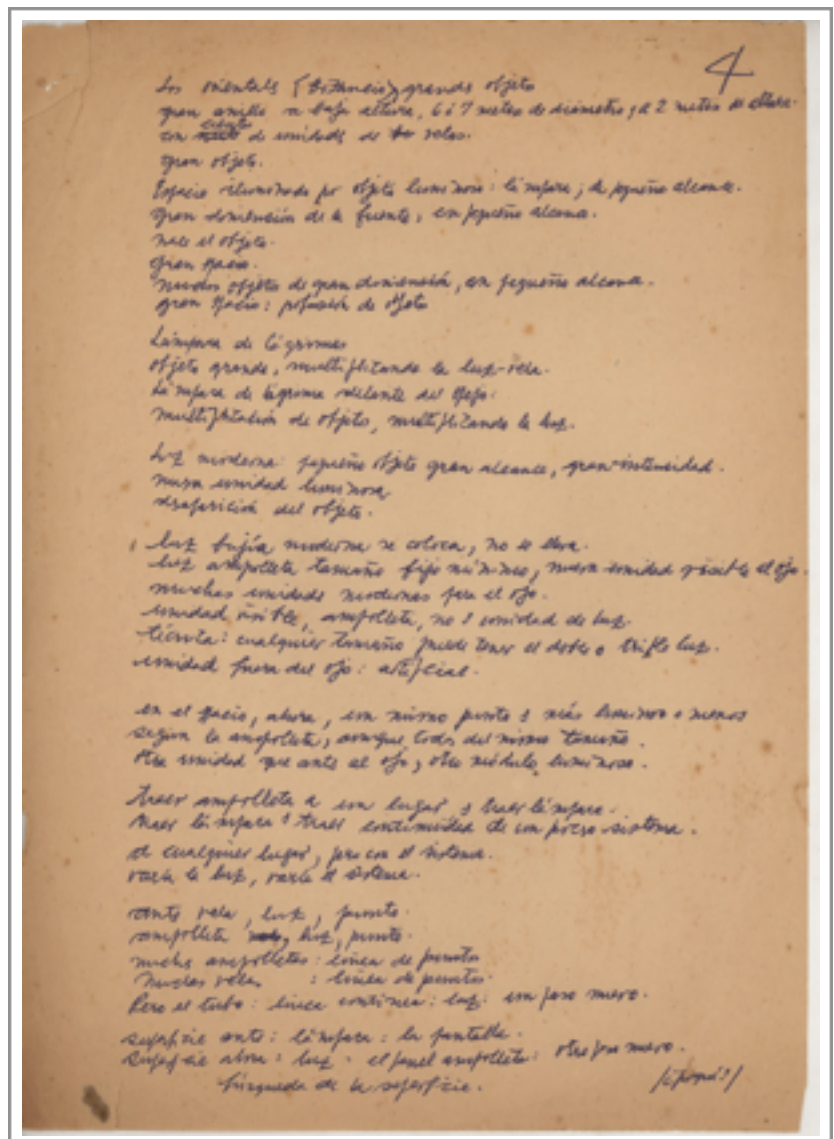 4
Los orientales (Bizancio) grandes objeto
gran anillo a baja altura, 6 ó 7 metros de diámetro y a 2 metros de altura.
con ciento de unidades de velas.
gran objeto.
Espacio iluminado por objeto luminoso: lámpara; de pequeño alcance.
gran dimensión de la fuente, con pequeño alcance.
nace el objeto.
gran espacio.
muchos objetos de gran dimensión, con pequeño alcance.
gran espacio: profusión de objeto
Lámpara de lágrimas
objeto grande, multiplicando la luz-vela.
Lámpara de lágrima delante del espejo:
multiplicación de objeto, multiplicando la luz.
Luz moderna: pequeño objeto gran alcance, gran intensidad.
nueva unidad luminosa
desaparición del objeto.
luz bujía moderna se coloca, no se lleva.
luz ampolleta tamaño fijo mínimo, nueva unidad visible al ojo.
muchas unidades modernas para el ojo.
unidad visible, ampolleta, no es unidad de luz
técnica: cualquier tamaño puede tener el doble o triple luz.
unidad fuera del ojo: artificial.
en el espacio, ahora, un mismo punto es más luminoso o menos
según la ampolleta, aunque todas del mismo tamaño.
otra unidad que antes al ojo, otro módulo luminoso.
traer ampolleta a un lugar es traer lámpara.
traer lámpara es traer continuidad de un sistema.
a cualquier lugar, pero con el sistema.
varía la luz, varía el sistema.
antes vela, luz, punto.
ampolleta, luz, punto.
muchas ampolletas: línea de puntos
muchas velas : línea de puntos.
Pero el tubo: línea continua: luz: un paso nuevo.
superficie antes: lámpara: la pantalla.
superficie ahora: luz. el panel ampolleta: otro paso nuevo.
búsqueda de la superficie.